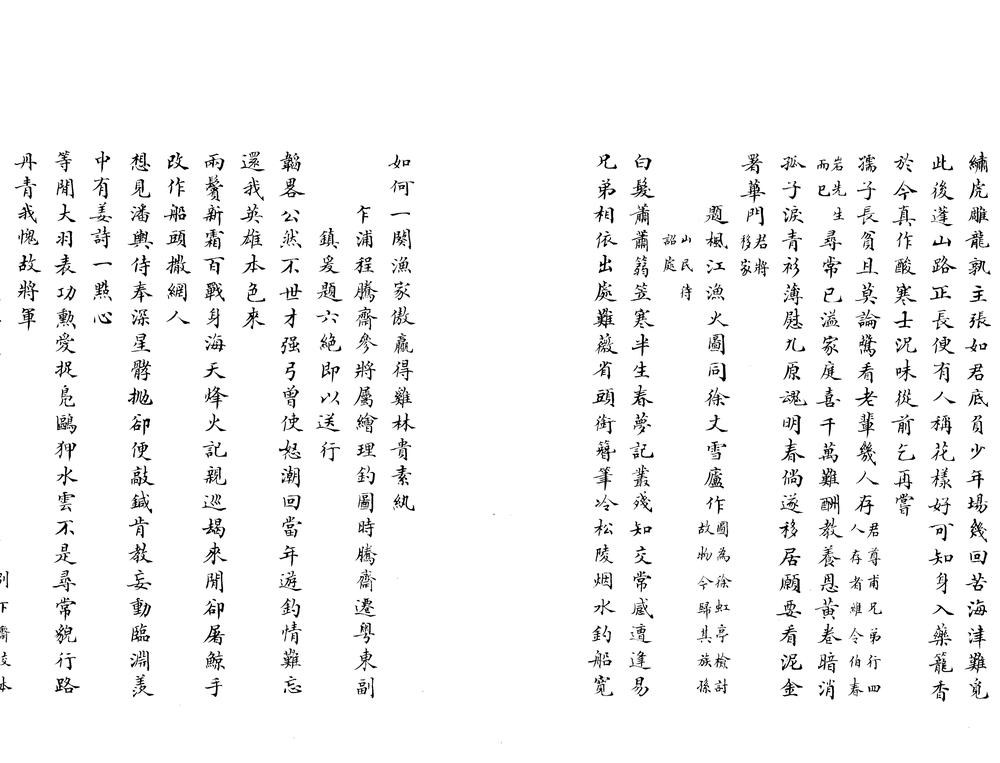 繡虎雕龍孰主張如君底負少年場幾回苦海津難覓
此後蓬山路正長便有人稱花樣好可知身入藥籠香
於今真作酸寒士況味從前乞再嘗
孺子長貧且莫論驚看老輩幾人存君尊甫兄弟行四人存者雖令伯春
岩先生而已尋常已溢家庭喜千萬難酬教養恩黃卷暗消
孤子淚青衫薄慰九原魂明春倘遂移居願要看泥金
署華門君將移家
題楓江漁火圖同徐丈雪廬作圖為徐虹亭檢討故物今歸其族孫
山民待詔處
白髮蕭蕭篛笠寒半生春夢記叢殘知交常感遭逢易
兄弟相依出處難薇省頭銜簪筆冷松陵烟水釣船寬
如何一闋漁家傲贏得雞林貴素紈
乍浦程騰齋參將屬繪理釣圖時騰齋遷粵東副
鎮爰題六絕即以送行
韜畧公然不世才强弓曾使怒潮回當年遊釣情難忘
還我英雄本色來
兩鬢新霜百戰身海天烽火記親巡朅來閒卻屠鯨手
改作船頭撒網人
想見潘輿侍奉深星髒拋卻便敲鍼肯教妄動臨淵羨
中有姜詩一點心
等閒大羽表功勲愛捉鳧鷗狎水雲不是尋常貌行路
丹青我愧故將軍